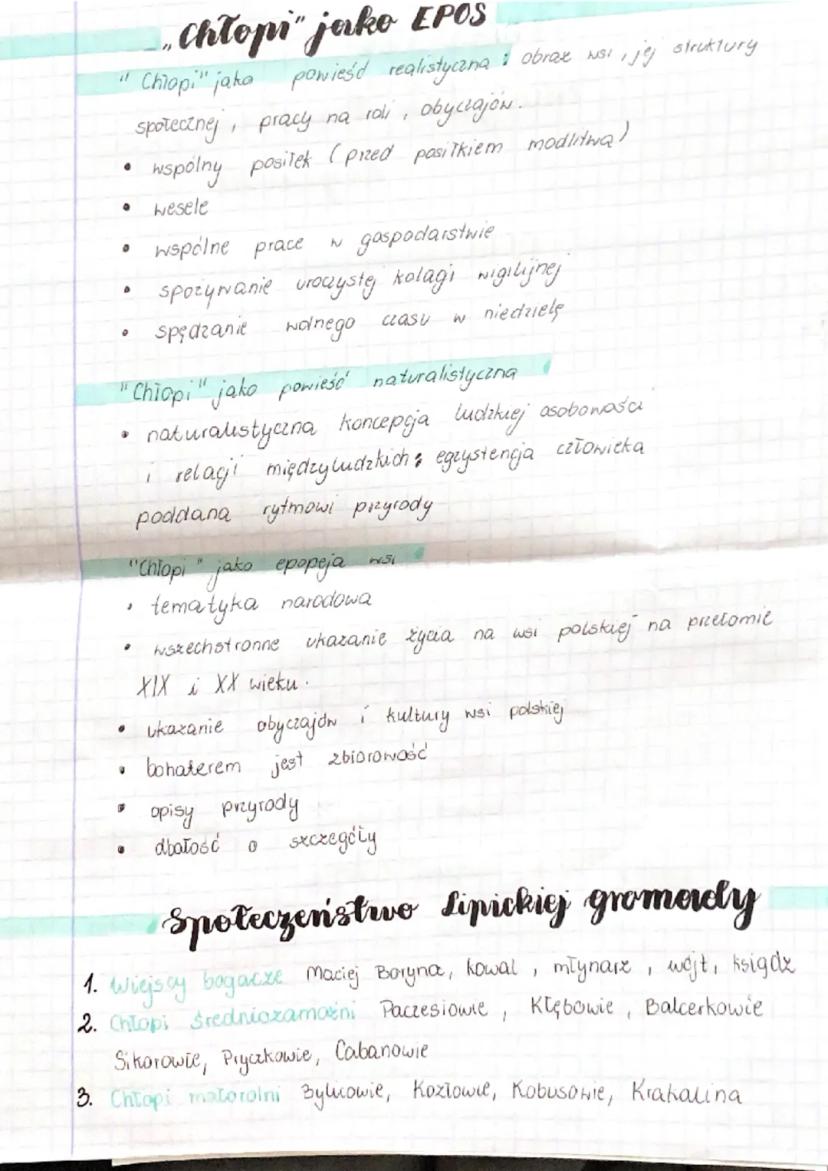 „Chłopi" jako EPOS
"Chłopi" jako powieść realistyczna: obraz wsi, jej struktury
społecznej, pracy na roli, obyczajów.
• wspólny posiłek (przed posiłkiem modlitwa)
• wesele
• wspólne prace w gospodarstwie
• spożywanie uroczystej kolacji wigilijnej
• spędzanie wolnego czasu w niedzielę
"Chłopi" jako powieść naturalistyczna
• naturalistyczna koncepcja ludzkiej osobowości
i relacji międzyludzkich; egzystencja człowieka
poddana rytmowi przyrody
"Chłopi" jako epopeja wsi
• tematyka narodowa
• wszechstronne ukazanie życia na wsi polskiej na przełomie
XIX i XX wieku.
• ukazanie obyczajów i kultury wsi polskiej
• bohaterem jest zbiorowość
• opisy przyrody
• dbałość o szczegóły
Społeczeństwo Lipickiej gromady
1. Wiejscy bogacze Maciej Boryna, kowal, młynarz, wójt, ksiądz
2. Chłopi średniozamożni Paczesiowie, Kłębowie, Balcerkowie
Sikorowie, Pryczkowie, Cabanowie
3. Chłopi małorolni Bylicowie, Kozłowie, Kobusowie, Krakalina